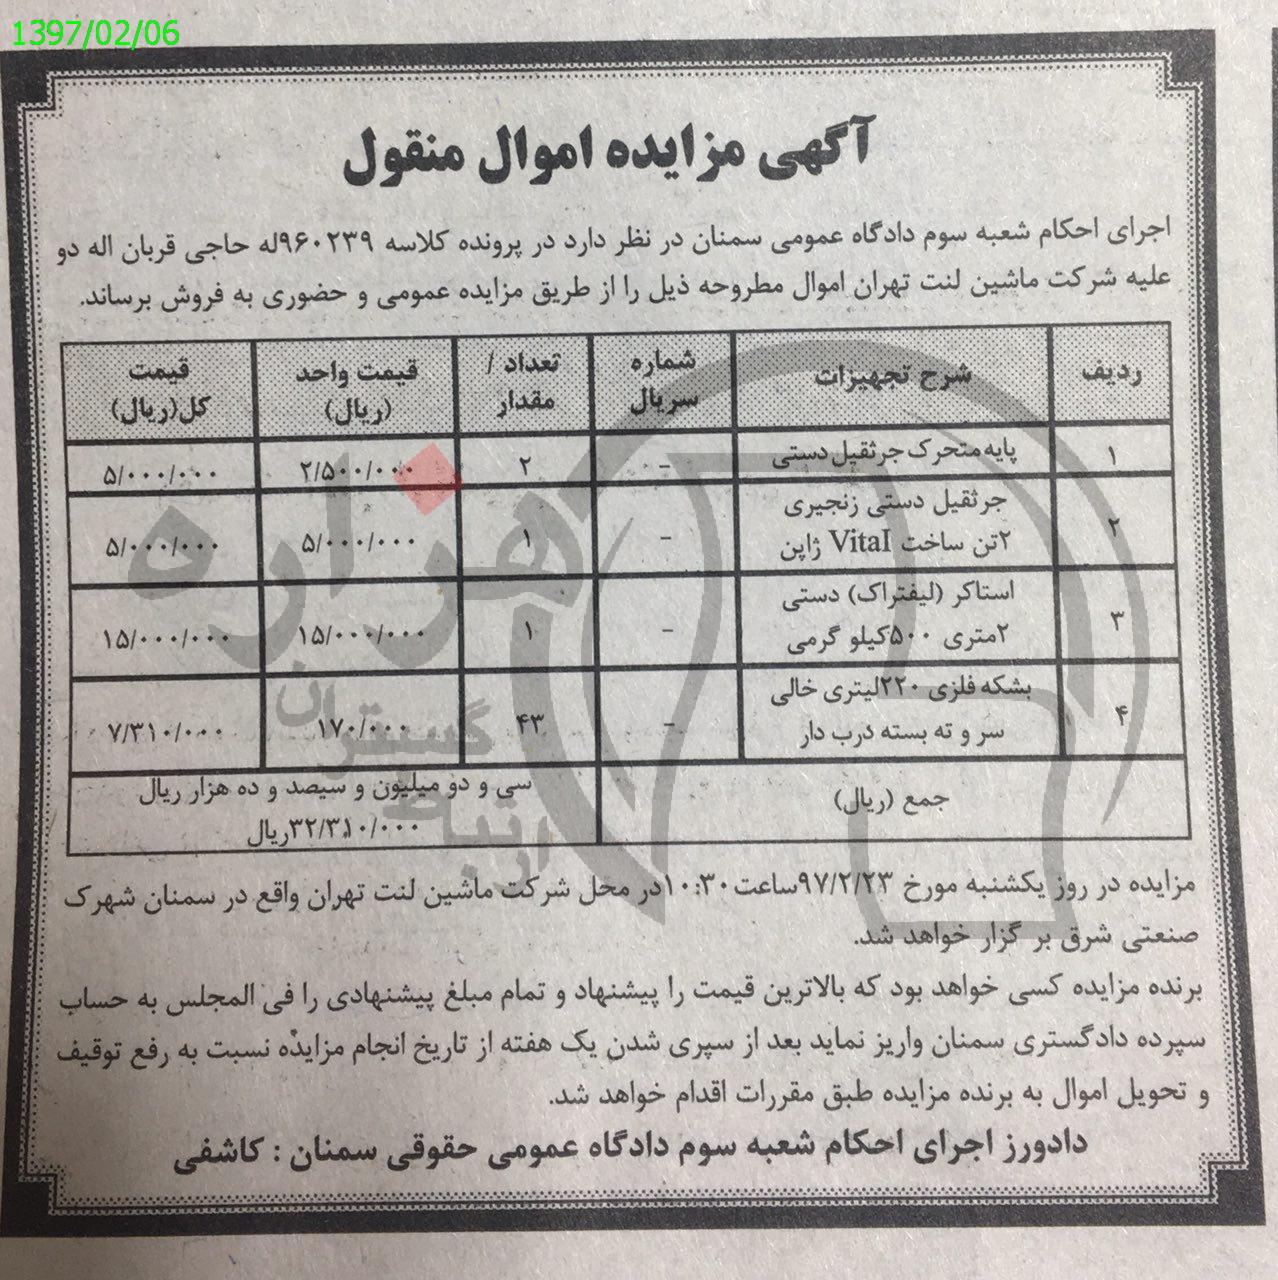 1397/02/06
آگهی مزایده اموال منقول
اجرای احکام شعبه سوم دادگاه عمومی سمنان در نظر دارد در پرونده کلاسه ۹۶۰۲۳۹له حاجی قربان اله دو
علیه شرکت ماشین لنت تهران اموال مطروحه ذیل را از طریق مزایده عمومی و حضوری به فروش برساند.
ردیف شرح تجهیزات شماره سریال تعداد / مقدار قیمت واحد (ریال) قیمت کل(ریال)
۱ پایه متحرک جرثقیل دستی - ۲ ۲/۵۰۰/۰۰۰ ۵/۰۰۰/۰۰۰
۲ جرثقیل دستی زنجیری ۲تن ساخت Vital ژاپن - ۱ ۵/۰۰۰/۰۰۰ ۵/۰۰۰/۰۰۰
۳ استاکر (لیفتراک) دستی ۲متری ۵۰۰کیلو گرمی - ۱ ۱۵/۰۰۰/۰۰۰ ۱۵/۰۰۰/۰۰۰
۴ بشکه فلزی ۲۲۰لیتری خالی سر و ته بسته درب دار - ۴۳ ۱۷۰/۰۰۰ ۷/۳۱۰/۰۰۰
جمع (ریال) سی و دو میلیون و سیصد و ده هزار ریال
۳۲/۳۱۰/۰۰۰ریال
مزایده در روز یکشنبه مورخ ۹۷/۲/۲۳ساعت۱۰:۳۰در محل شرکت ماشین لنت تهران واقع در سمنان شهرک
صنعتی شرق بر گزار خواهد شد.
برنده مزایده کسی خواهد بود که بالاترین قیمت را پیشنهاد و تمام مبلغ پیشنهادی را فی المجلس به حساب
سپرده دادگستری سمنان واریز نماید بعد از سپری شدن یک هفته از تاریخ انجام مزایده نسبت به رفع توقیف
و تحویل اموال به برنده مزایده طبق مقررات اقدام خواهد شد.
دادورز اجرای احکام شعبه سوم دادگاه عمومی حقوقی سمنان : کاشفی
هزاره
ارتباط گستران